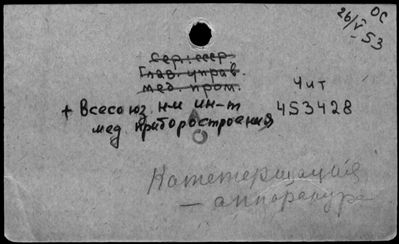 ОС
26/V-53
Сер: ссср
Глав. управ.
мед. пром.
Чит
+ Всесоюз. н-и ин-т
453428
мед приборостроения
Катетеризация
— аппаратура